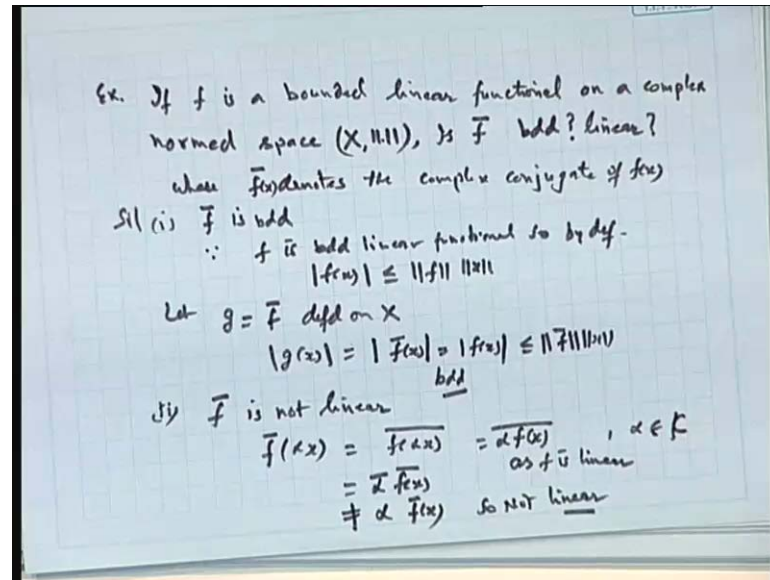 Ex. If f is a bounded linear functional on a complex
normed space (X, ||.||), Is f̅ bdd? linear?
where f̅(x) denotes the complex conjugate of f(x)
Sol (i) f̅ is bdd
∵ f is bdd linear functional so by def.
|f(x)| ≤ ||f|| ||x||
Let g = f̅ defd on X
|g(x)| = |f̅(x)| = |f(x)| ≤ ||f̅|| ||x||
bdd
(ii) f̅ is not linear
f̅(αx) = \overline{f(αx)} = \overline{αf(x)} , α ∈ K
as f is linear
= α̅ \overline{f(x)}
≠ α f̅(x) So NOT linear